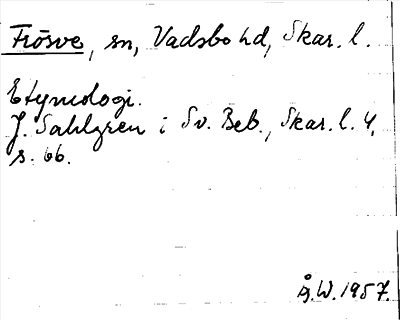 Frösve, sn, Vadsbo hd, Skar. l.
Etymologi.
J. Sahlgren i Sv. Beb., Skar. l. 4,
s. 66.
Å.W. 1957.